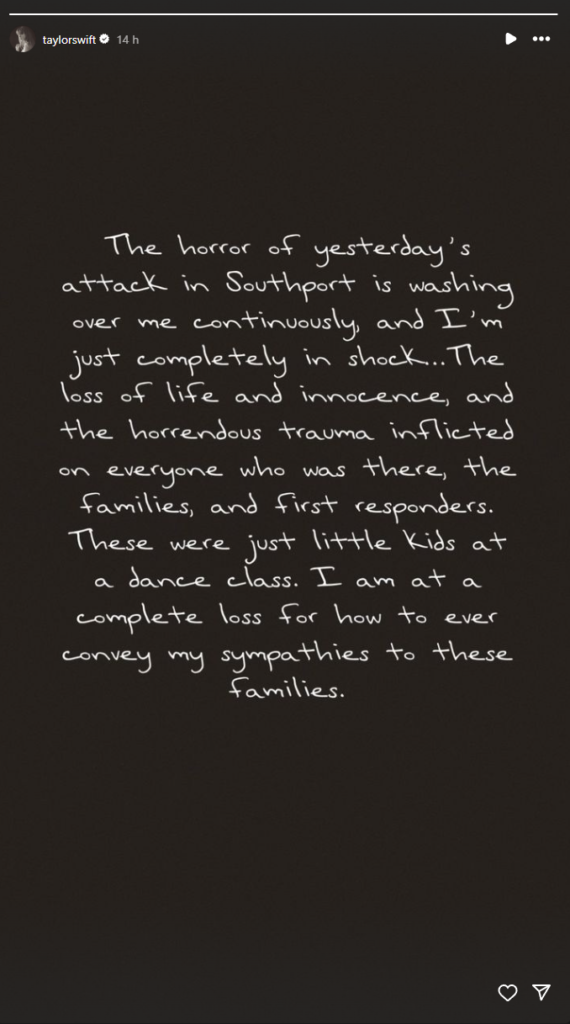 taylorswift 14 h
The horror of yesterday's
attack in Southport is washing
over me continuously, and I'm
just completely in shock...The
loss of life and innocence, and
the horrendous trauma inflicted
on everyone who was there, the
families, and first responders.
These were just little kids at
a dance class. I am at a
complete loss for how to ever
convey my sympathies to these
families.